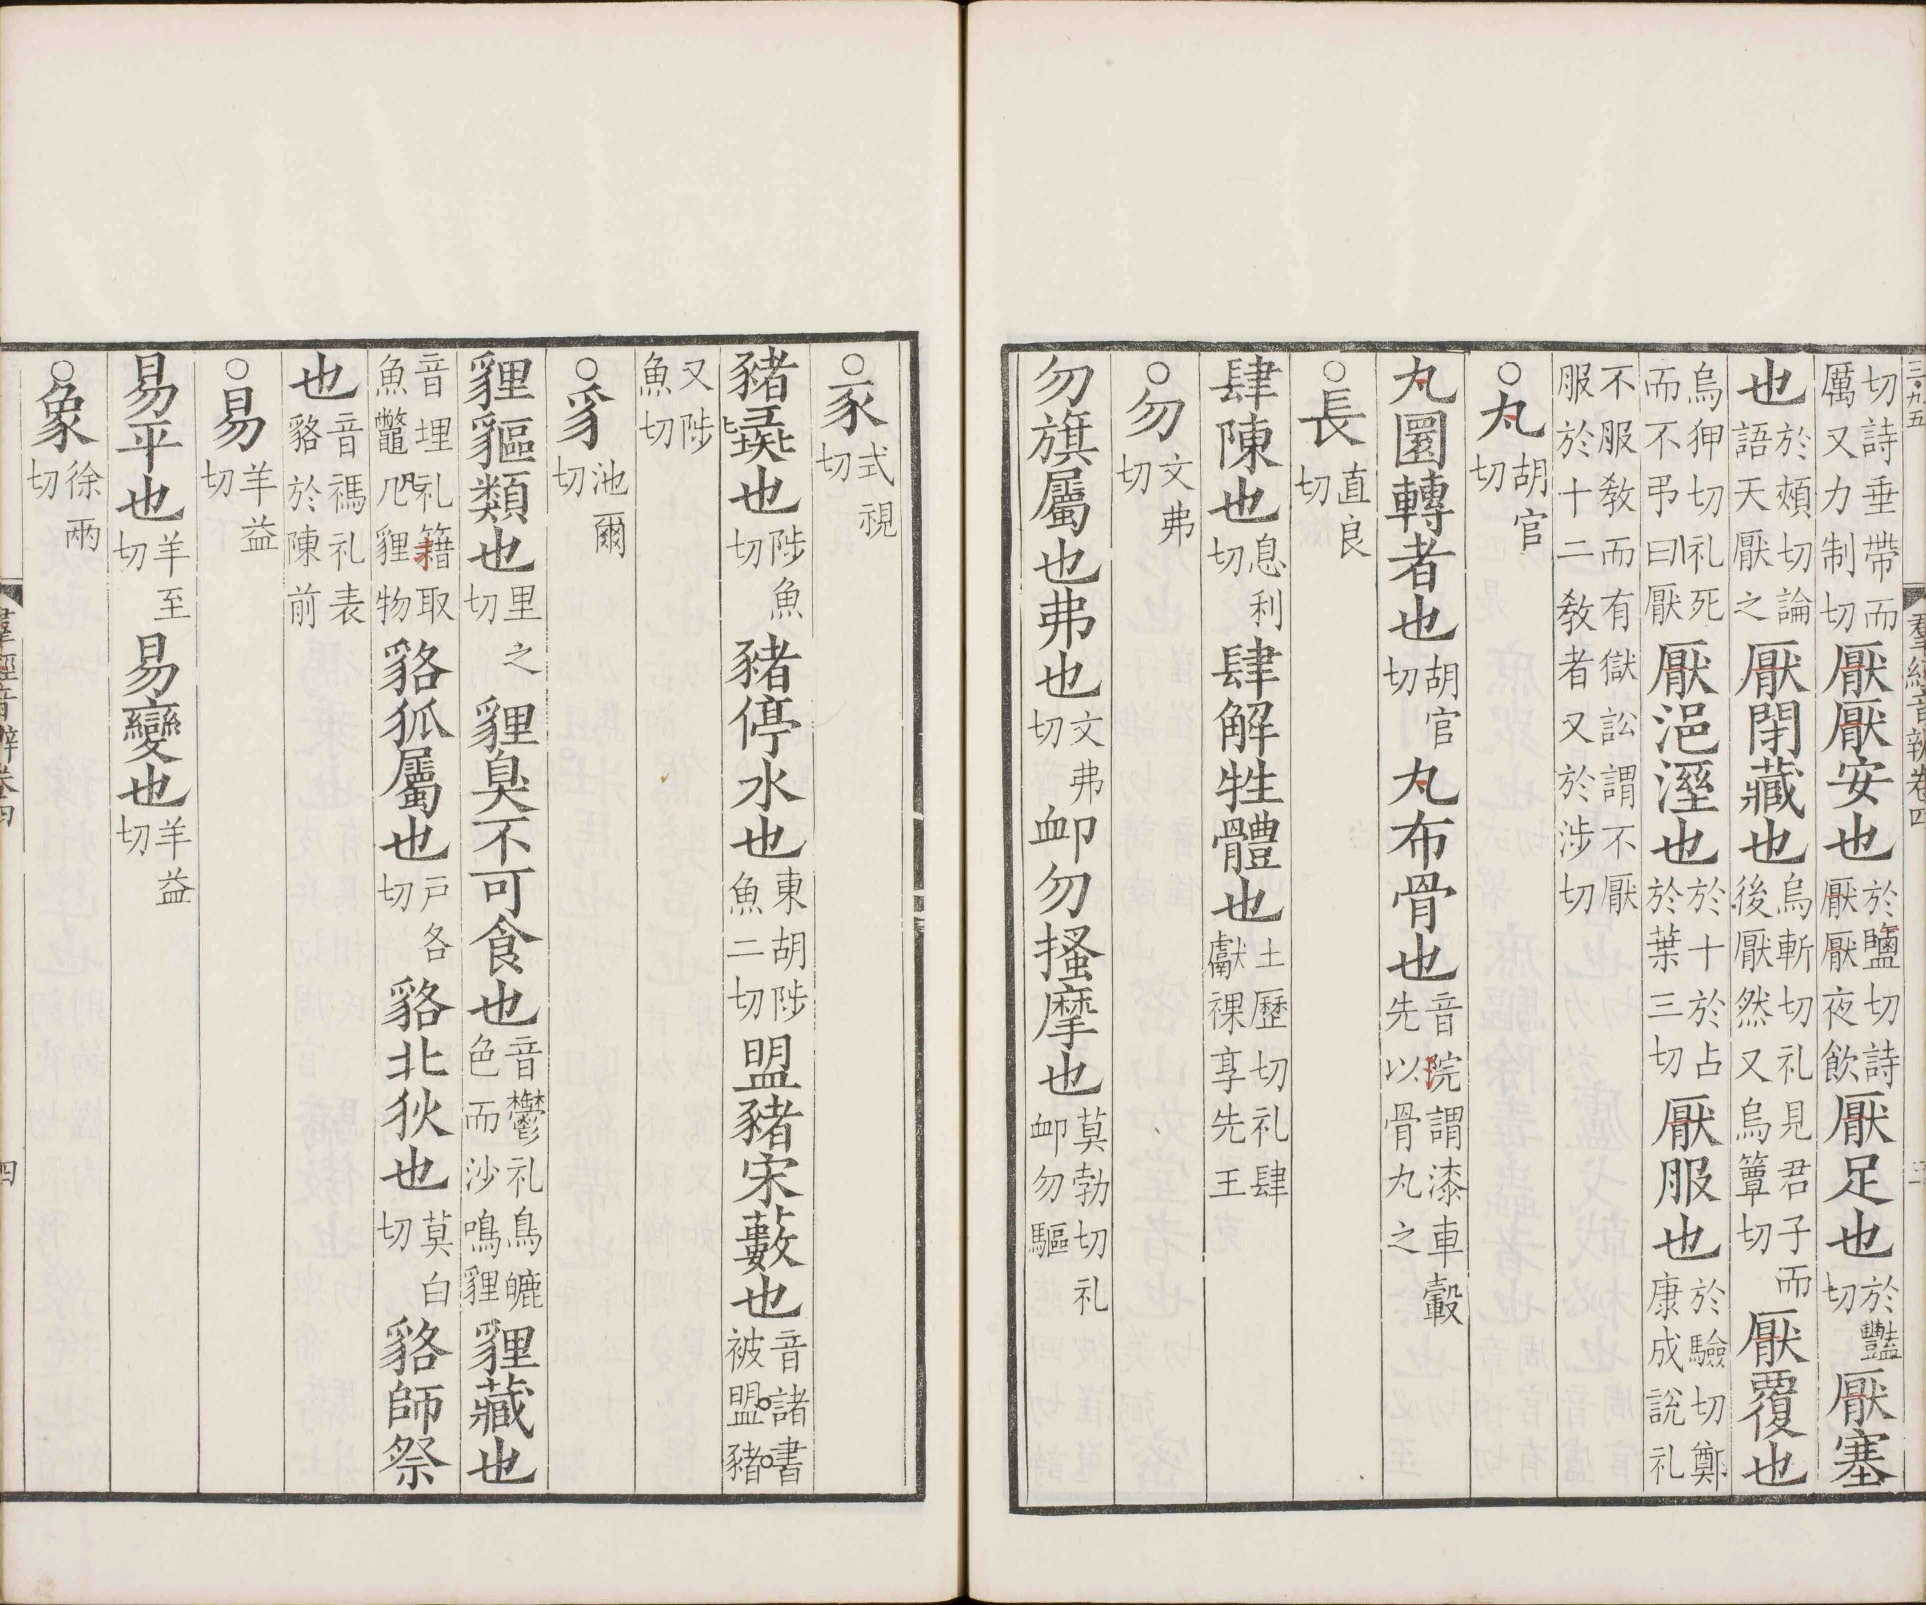 三九五 羣經音辨卷四 三
切詩垂帶而厲又力制切厭厭安也於鹽切詩厭厭夜飲厭足也於豔切厭塞
也於頰切論語天厭之厭閉藏也烏斬切礼見君子而後厭然又烏簟切厭覆也
烏狎切礼死而不弔曰厭厭浥溼也於十於占於葉三切厭服也於驗切鄭康成說礼
不服教而有獄訟謂不厭服於十二教者又於涉切
○丸胡官切
丸圜轉者也胡官切丸布骨也音院謂漆車轂先以骨丸之
○長直良切
肆陳也息利切肆解牲體也土歷切礼肆獻祼享先王
○勿文弗切
勿旗屬也弗也文弗切卹勿搔摩也莫勃切礼卹勿驅
○豕式視切
豬彘也陟魚切豬停水也東胡陟魚二切盟豬宋藪也音諸書被盟豬
又陟魚切
○豸池爾切
貍貙類也里之切貍臭不可食也音鬱礼鳥皫色而沙鳴貍貍藏也
音埋礼籍取魚鼈凡貍物貉狐屬也戶各切貉北狄也莫白切貉師祭
也音禡礼表貉於陳前
○易羊益切
易平也羊至切易變也羊益切
○象徐兩切
羣經音辨卷四 四